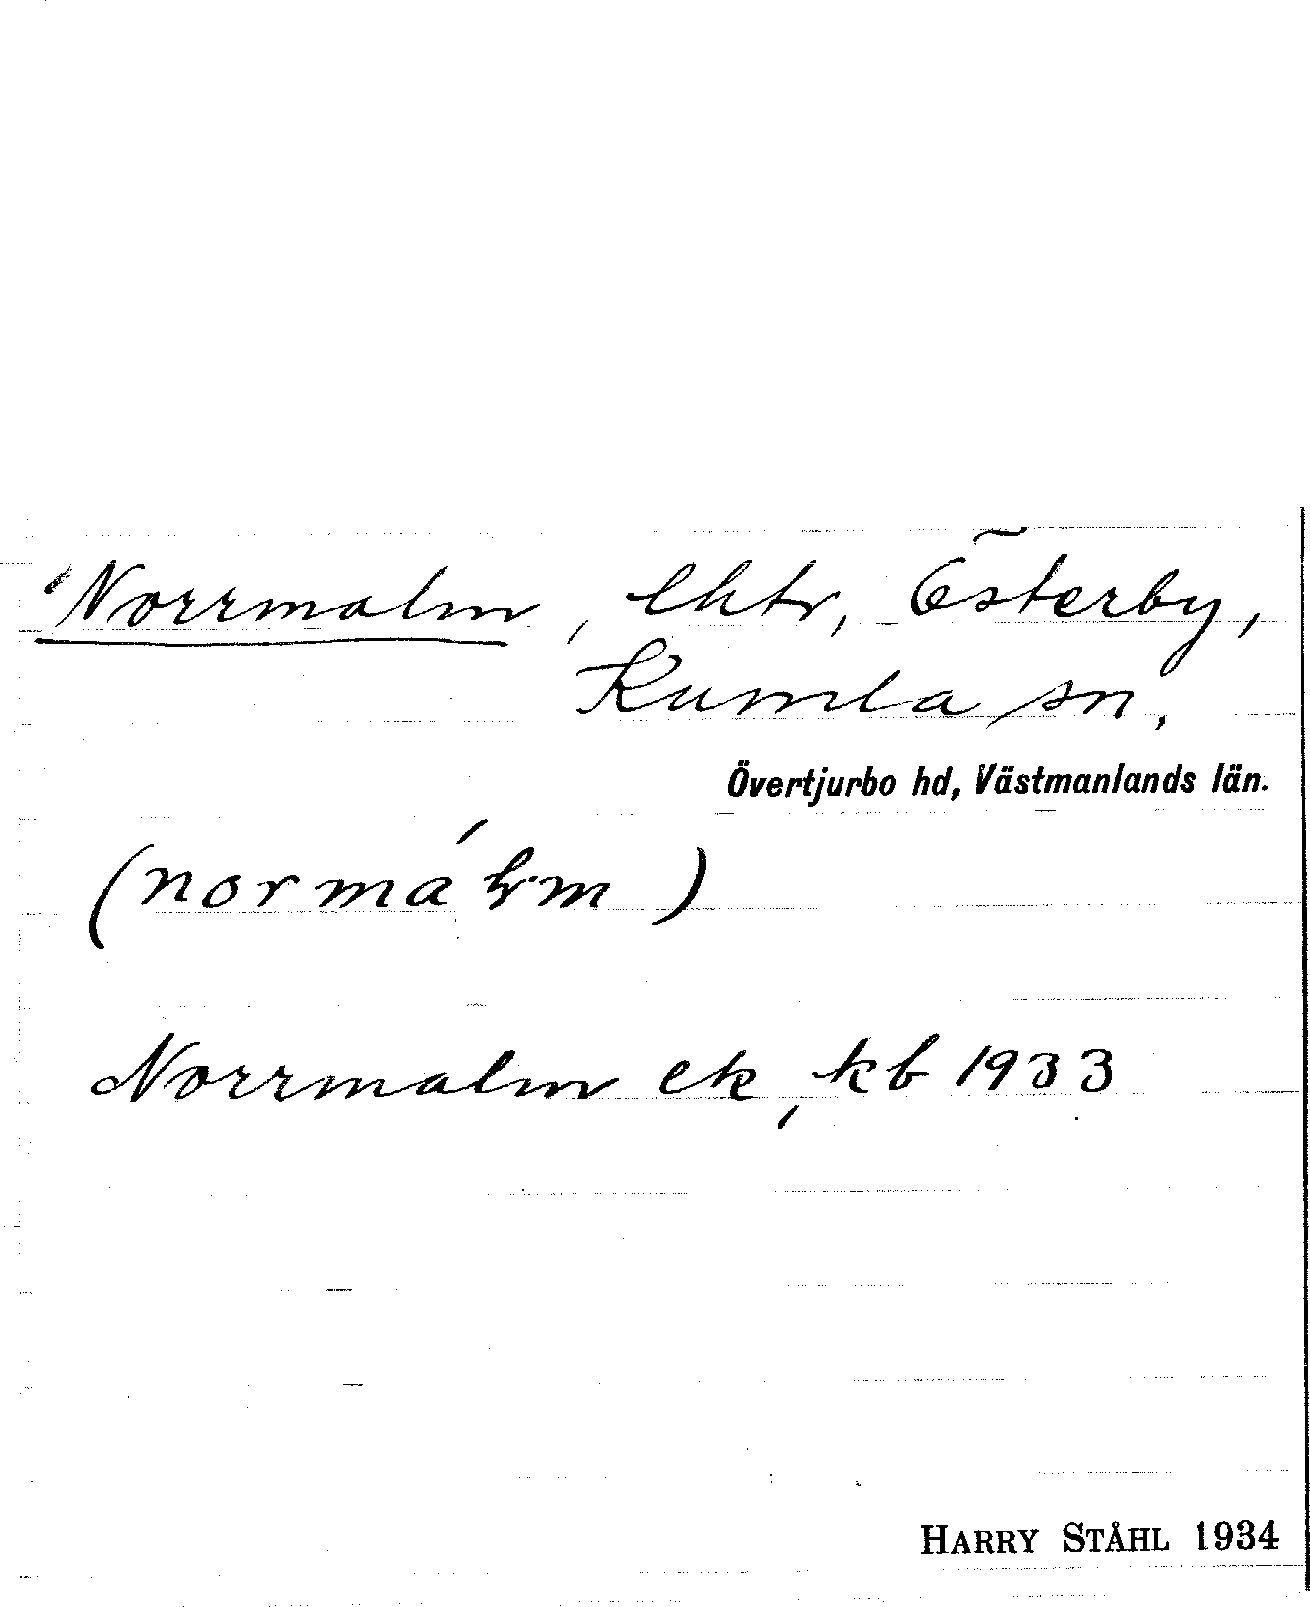 Norrmalm, lhtr, Österby,
Kumla sn,
Övertjurbo hd, Västmanlands län.
Norrmalm ek, kb 1933
HARRY STÅHL 1934